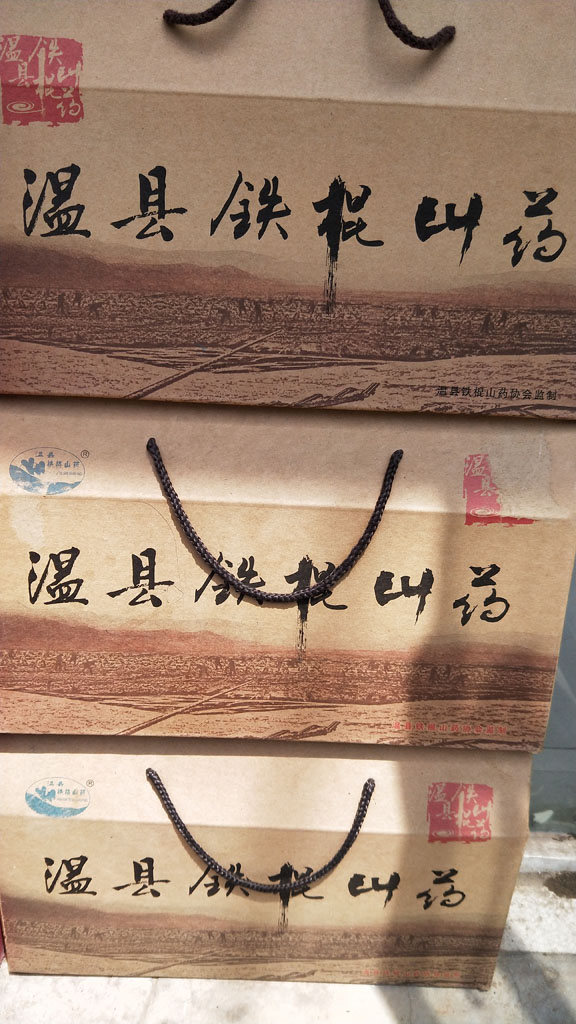 温县铁棍山药
温县铁棍山药
温县铁棍山药协会监制
温县
铁棍山药
®
温县
温县铁棍山药
温县铁棍山药协会监制
温县
铁棍山药
®
温县铁棍山药
温县铁棍山药